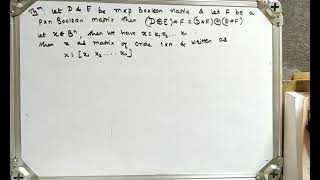 Thm: Let D & E be mxp Boolean matrix & let F be a
pxn Boolean matrix then (D⊕E)*F = (D*F)⊕(E*F)
Let x ∈ Bⁿ, then we have x = x₁ x₂ .... xₙ
then x as matrix of order 1xn & written as
x = [x₁ x₂ .... xₙ]